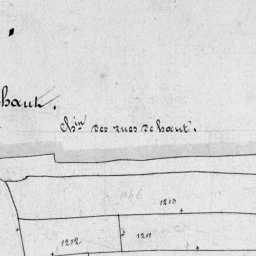 haut.
Ch.in des rues de haut.
1210
1212 1211